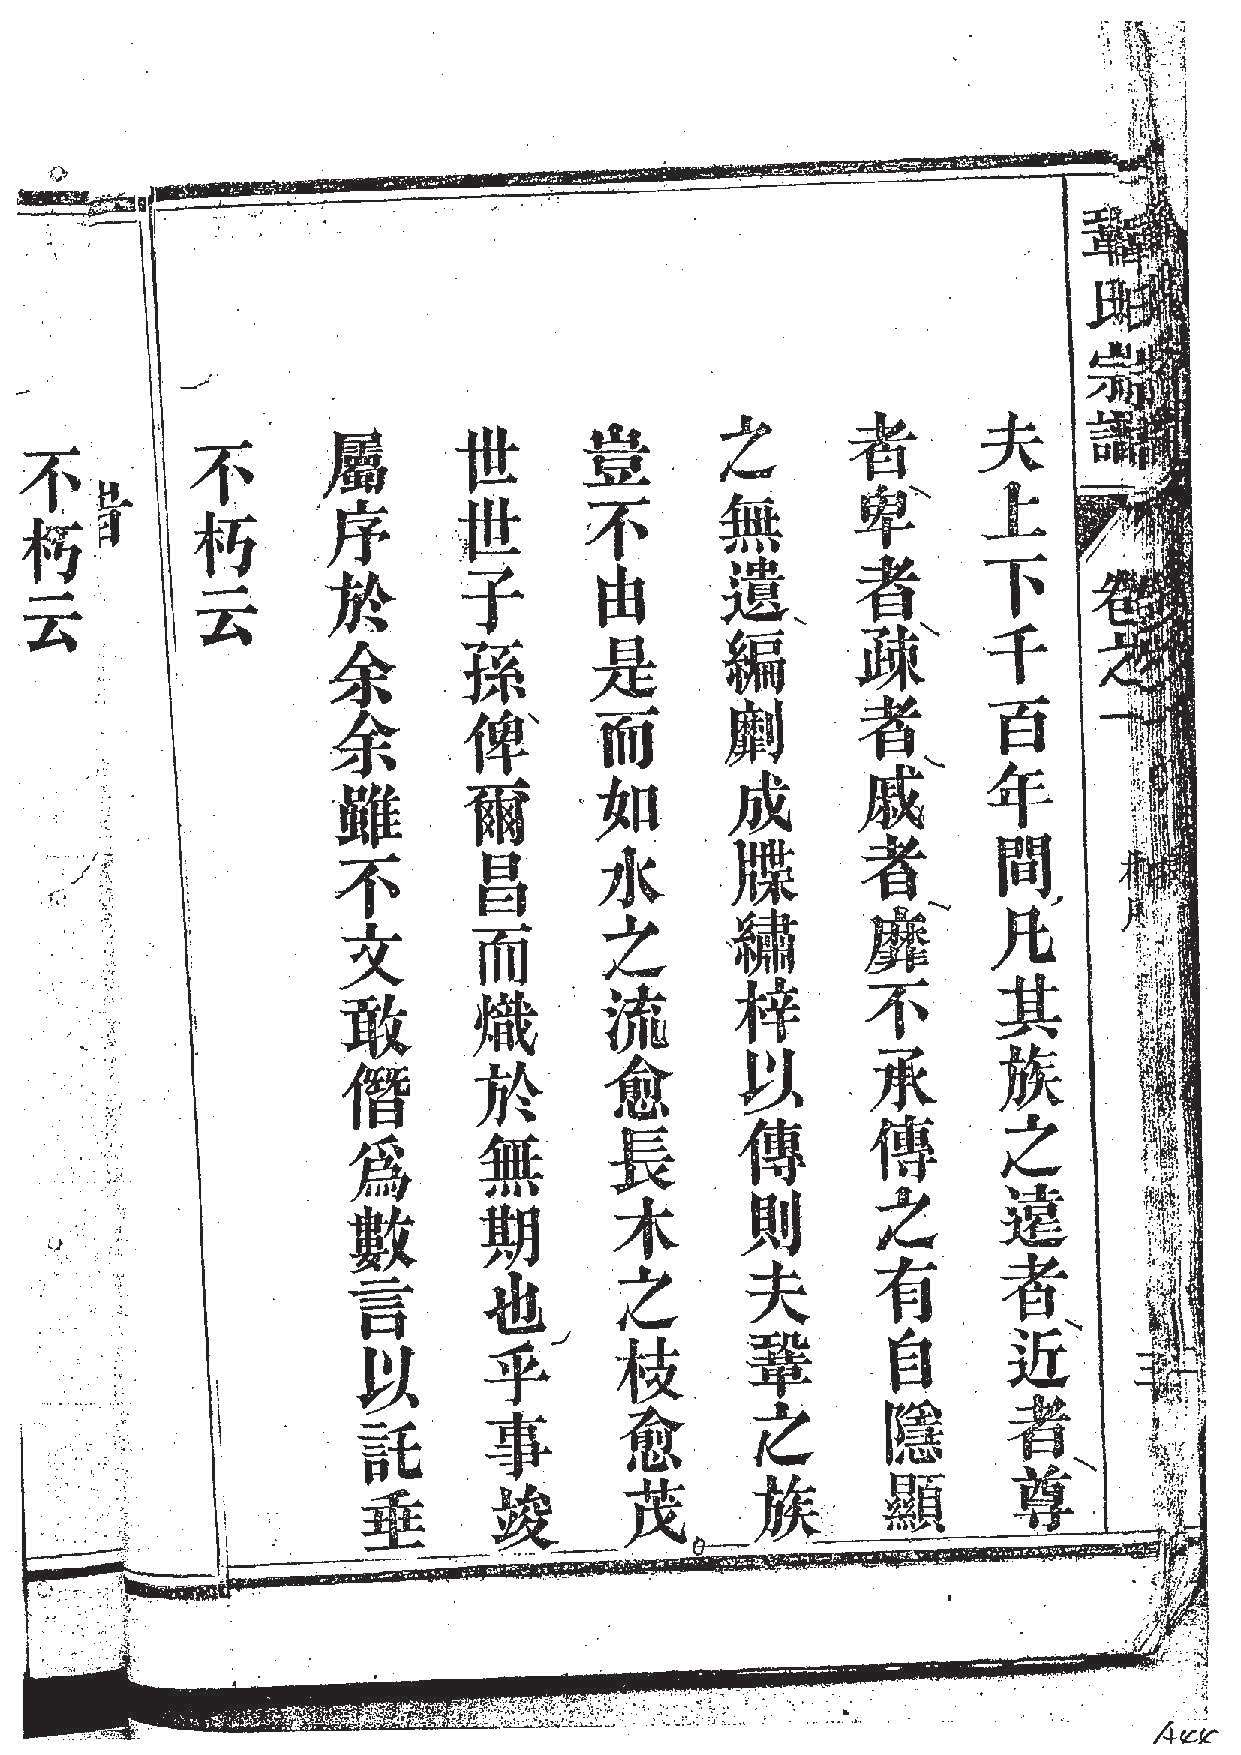 鞏氏宗譜 卷之一
夫上下千百年間凡其族之遠者近者尊
者卑者疎者戚者靡不承傳之有自隱顯
之無遺編劂成牒繡梓以傳則夫鞏之族
豈不由是而如水之流愈長木之枝愈茂
世世子孫俾爾昌而熾於無期也乎事竣
屬序於余余雖不文敢僭爲數言以託垂
不朽云
不朽云